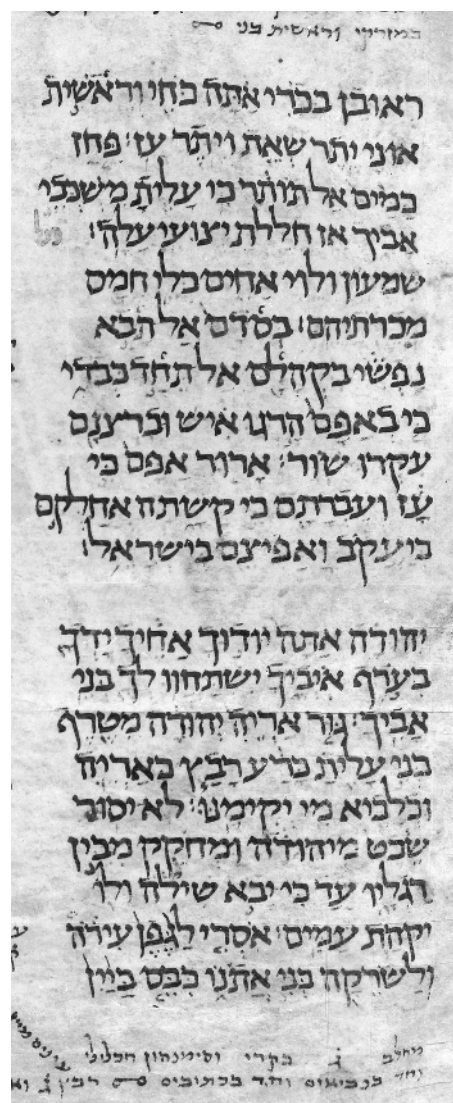 וראשית בני
ראובן בכרי אתה כחי וראשית
אוני יתר שאת ויתר עז׃ פחז
כמים אל תותר כי עלית משכבי
אביך אז חללת יצועי עלה׃
שמעון ולוי אחים כלי חמס
מכרתיהם׃ בסדם אל תבא
נפשי בקהלם אל תחד כבדי
כי באפם הרגו איש וברצנם
עקרו שור׃ ארור אפם כי
עז ועברתם כי קשתה אחלקם
ביעקב ואפיצם בישראל׃
יהודה אתה יודוך אחיך ידך
בערף איביך ישתחוו לך בני
אביך׃ גור אריה יהודה מטרף
בני עלית כרע רבץ כאריה
וכלביא מי יקימנו׃ לא יסור
שבט מיהודה ומחקק מבין
רגליו עד כי יבא שילה ולו
יקהת עמים׃ אסרי לגפן עירה
ולשרקה בני אתנו כבס ביין
מחלב ג̇ בקרי וסימנהון חכלילי עינים
וחד בנביאים וחד בכתובים רבץ ג̇